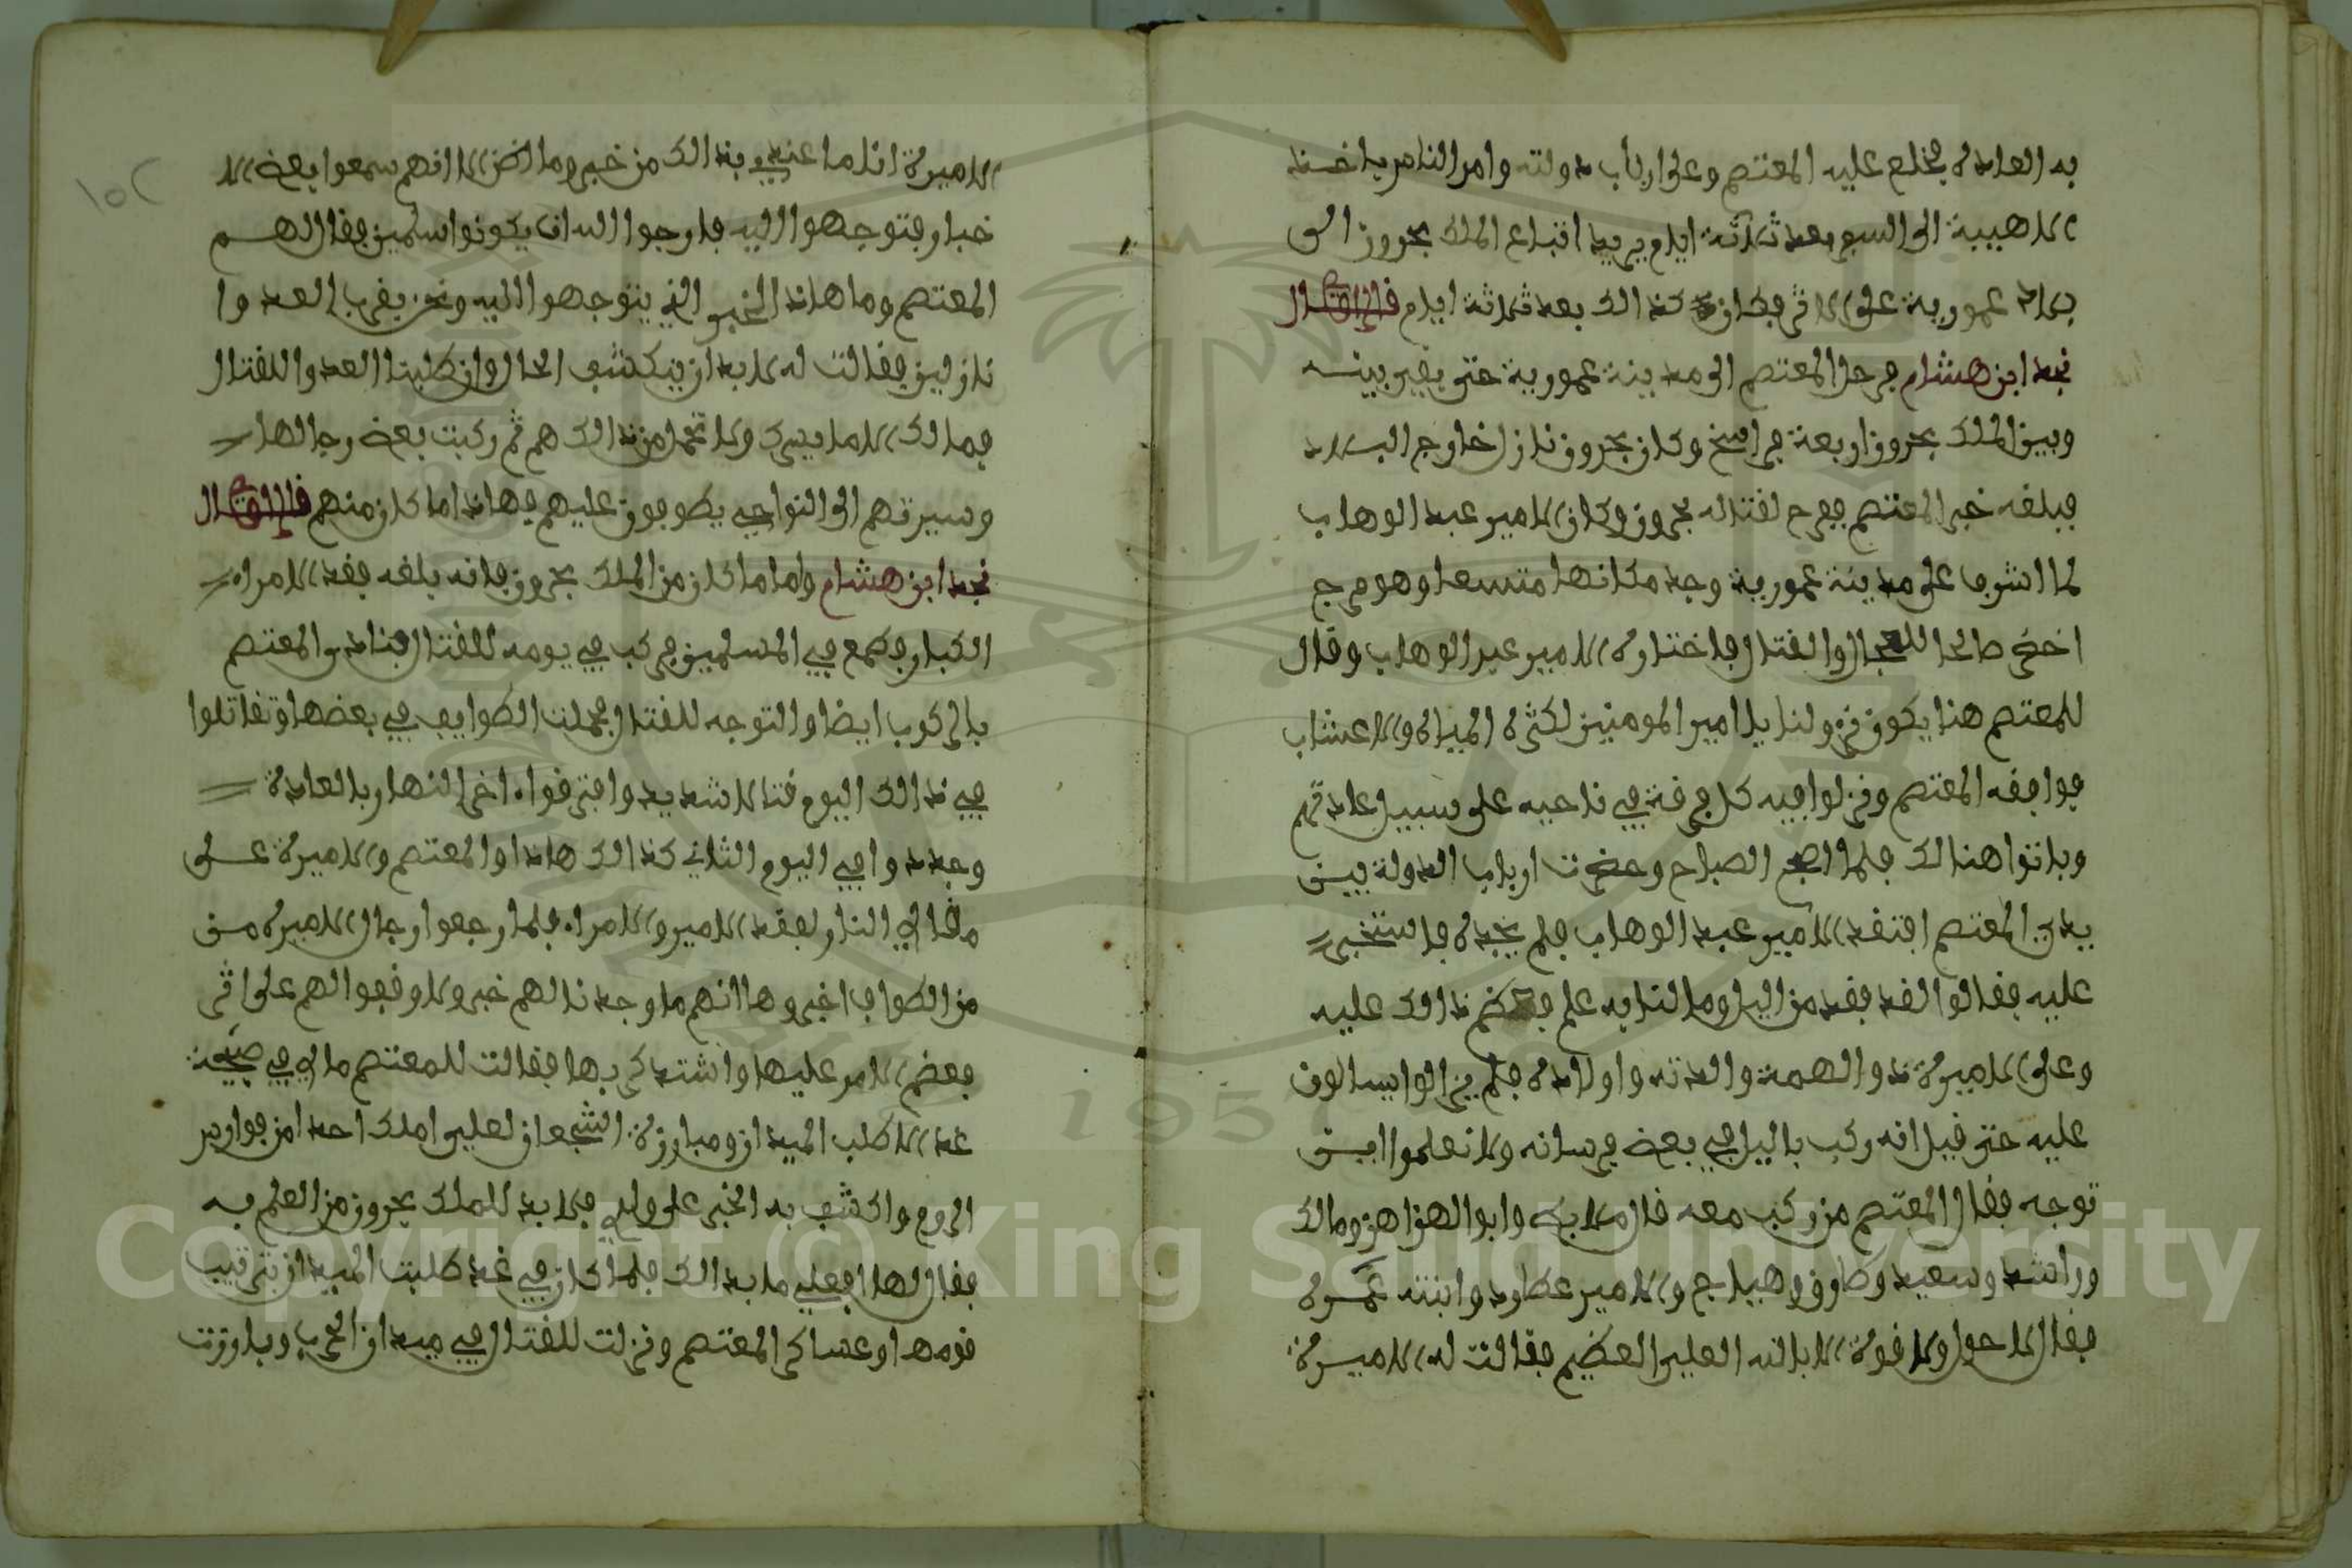 به العادة فخلع عليه المعتصم وعلى ارباب دولته وامر الناس باخذ
الاهبة الى السير بعد ثلاثة ايام يريد اتباع الملك بحرون الى
بلاد عمورية على الاثر فكان كذالك بعد ثلاثة ايام قال
نجد ابن هشام فرحل المعتصم الى مدينة عمورية حتى بقي بينه
وبين الملك بحرون اربعة فراسخ وكان بحرون نازل خارج البلاد
فبلغه خبر المعتصم ففرح لقتاله بحرون وكان الامير عبد الوهاب
لما اشرف على مدينة عمورية وجد مكانها متسعا وهو مرج
اخضر صالحا للمجال والقتال فاختاره الامير عبد الوهاب وقال
للمعتصم هنا يكون نزولنا يا امير المومنين لكثرة المياه والاعشاب
فوافقه المعتصم ونزلوا فيه كل فرقة في ناحيه على سبيل عادتهم
وباتوا هنالك فلما اصبح الصباح وحضرت ارباب الدولة بين
يدي المعتصم افتقد الامير عبد الوهاب فلم يجده فاستخبر
عليه فقالوا لقد فقد من اليل وما لنا به علم فعظم ذالك عليه
وعلى الاميرة ذو الهمة والدته واولاده فلم يزالوا يسالون
عليه حتى قيل انه ركب باليل في بعض فرسانه ولا نعلموا اين
توجه فقال المعتصم من ركب معه قال ملابك وابوا الهزاهز ومالك
وراشد وسعيد وطارق وهياج والامير عطارد وابنته غمرة
فقال لا حول ولا قوة الا بالله العلي العظيم فقالت له الاميرة
الاميرة انا ما عندي بذالك من خبر وما اظن الا انهم سمعوا بعض الا
خبار فتوجهوا اليه فارجوا الله ان يكونوا سالمين فقال لهم
المعتصم وما هاذا الخبر الذي يتوجهوا اليه ونحن بقرب العدوا
نازلين فقالت له لابد ان ينكشف الحال وان طلبنا العدو اللقتال
فما لك الا ما يسرك ولا تحمل من ذالك هم ثم ركبت بعض رجالها
وسيرتهم الى النواحي يطوفون عليهم فهاذا ما كان منهم قال
نجد ابن هشام واما ما كان من الملك بحرون فانه بلغه فقد الامراء
الكبار فطمع في المسلمين فركب في يومه للقتال فنادى المعتصم
بالركوب ايضا والتوجه للقتال فحملت الطوايف في بعضها وتقاتلوا
في ذالك اليوم قتالا شديد وافترقوا اخر النهار بالعادة
وعددوا في اليوم الثاني كذالك هاذا والمعتصم والاميرة على
مقالي النار لفقد الامير والامراء فلما رجعوا رجال الاميرة من
من الطواف اخبروها انهم ما وجدنا لهم خبر ولا وقعوا لهم على اثر
فعضم الامر عليها واشتد كربها فقالت للمعتصم مالي في صبيحة
غد الا طلب الميدان ومبارزة الشجعان لعلي املك احدا من فوارس
الروم واكشف به الخبر على ولدي فلا بد للملك بحرون من العلم به
فقال لها افعلي ما بدالك فلما كان في غد طلبت الميدان بترتيب
قومها وعساكر المعتصم ونزلت للقتال في ميدان الحرب وبارزت
١٥٢
Copyright © King Saud University
1957